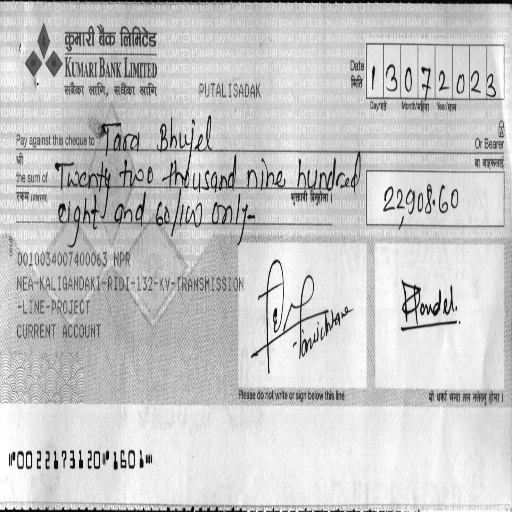 कुमारी बैंक लिमिटेड
KUMARI BANK LIMITED
सबैका लागि, सधैंका लागि
PUTALISADAK
Date 13072023
मिति
Day/गते Month/महिना Year/साल
Pay against this cheque to Tara Bhujel Or Bearer
श्री वा वाहकलाई
the sum of Twenty two thousand nine hundred
रकम 22,908.60
eight and 60/100 only-
0010034007400063 NPR
NEA-KALIGANDAKI-RIDI-132-KV-TRANSMISSION
-LINE-PROJECT
CURRENT ACCOUNT
Please do not write or sign below this line
⑈0022173120⑈1601⑈